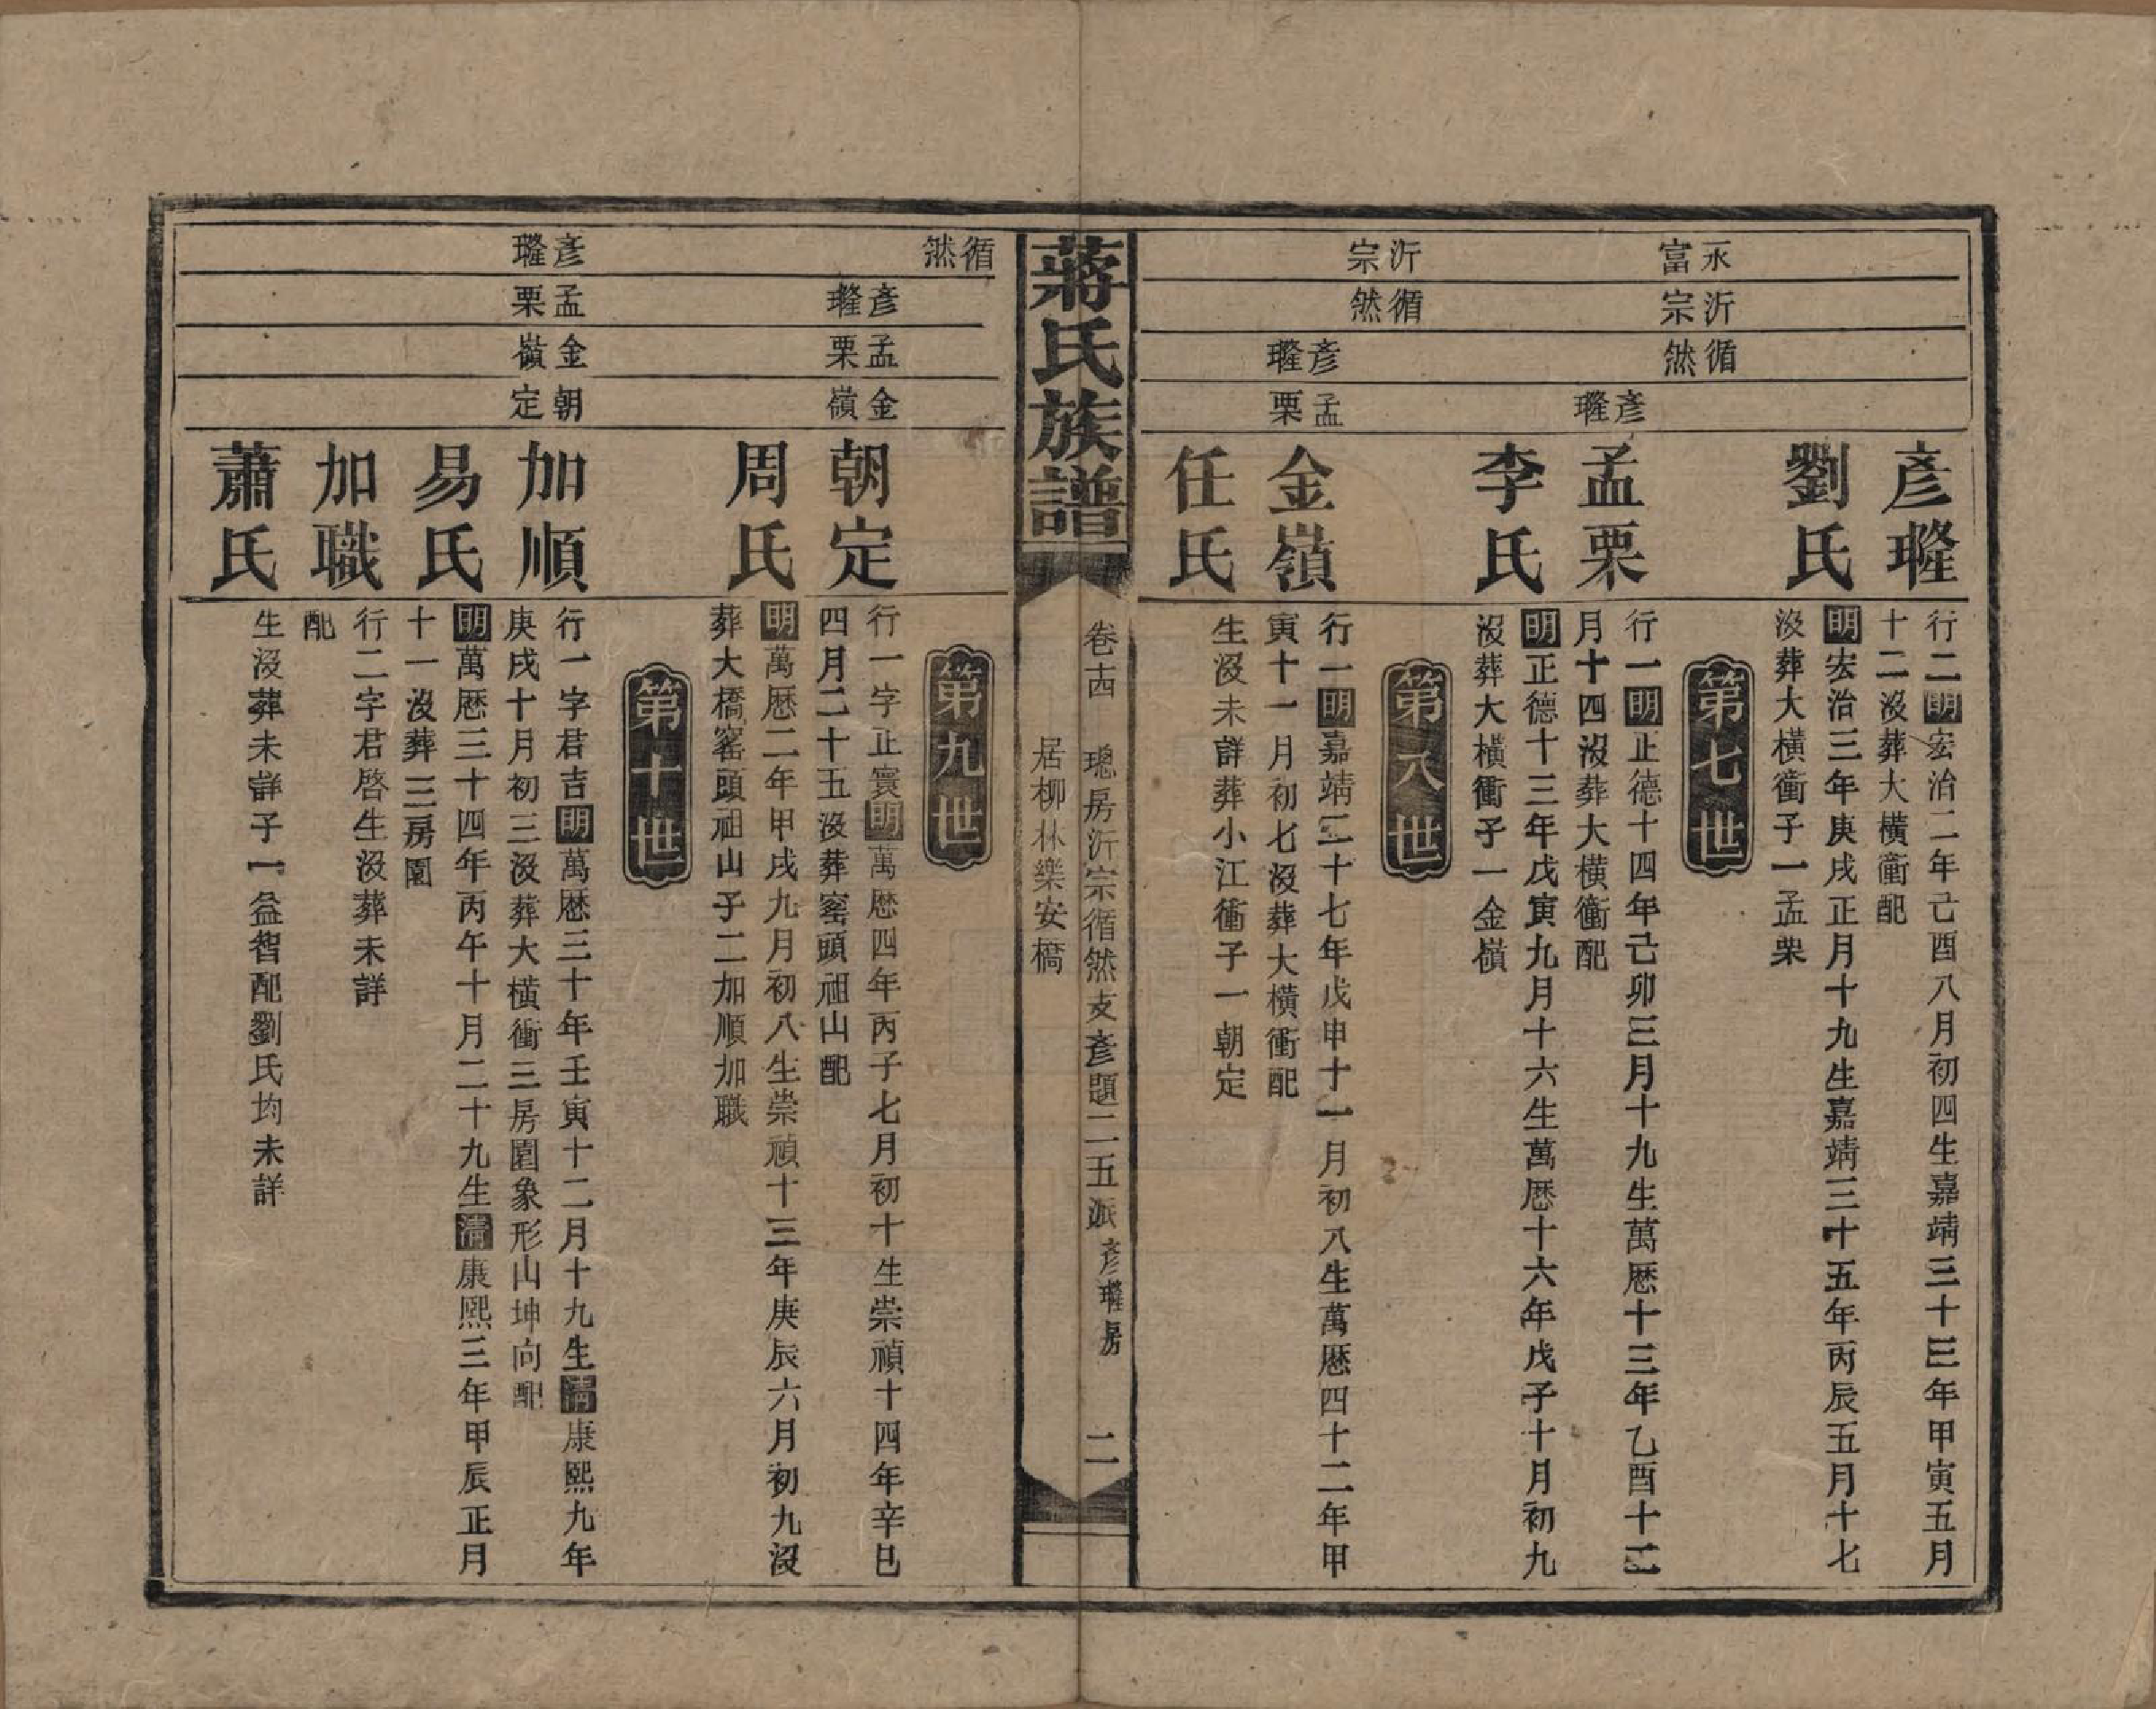 永富
沂宗
循然
彥𤩄
行二明宏治二年己酉八月初四生嘉靖三十三年甲寅五月
十二沒葬大橫衝配
劉氏
明宏治三年庚戌正月十九生嘉靖三十五年丙辰五月十七
沒葬大橫衝子一孟栗
第七世
彥𤩄
孟栗
行一明正德十四年己卯三月十九生萬歷十三年乙酉十二
月十四沒葬大橫衝配
李氏
明正德十三年戊寅九月十六生萬歷十六年戊子十月初九
沒葬大橫衝子一金嶺
第八世
沂宗
循然
彥𤩄
孟栗
金嶺
行一明嘉靖二十七年戊申十一月初八生萬歷四十二年甲
寅十一月初七沒葬大橫衝配
任氏
生沒未詳葬小江衝子一朝定
蔣氏族譜
卷十四 璁房沂宗循然支彥題二五派彥𤩄房 二
居柳林樂安橋
第九世
循然
彥𤩄
孟栗
金嶺
朝定
行一字正寰明萬歷四年丙子七月初十生崇禎十四年辛巳
四月二十五沒葬窰頭祖山配
周氏
明萬歷二年甲戌九月初八生崇禎十三年庚辰六月初九沒
葬大橋窰頭祖山子二加順加職
第十世
彥𤩄
孟栗
金嶺
朝定
加順
行一字君吉明萬歷三十年壬寅十二月十九生清康熙九年
庚戌十月初三沒葬大橫衝三房園象形山坤向配
易氏
明萬歷三十四年丙午十月二十九生清康熙三年甲辰正月
十一沒葬三房園
加職
行二字君啓生沒葬未詳
配
蕭氏
生沒葬未詳子一益智配劉氏均未詳